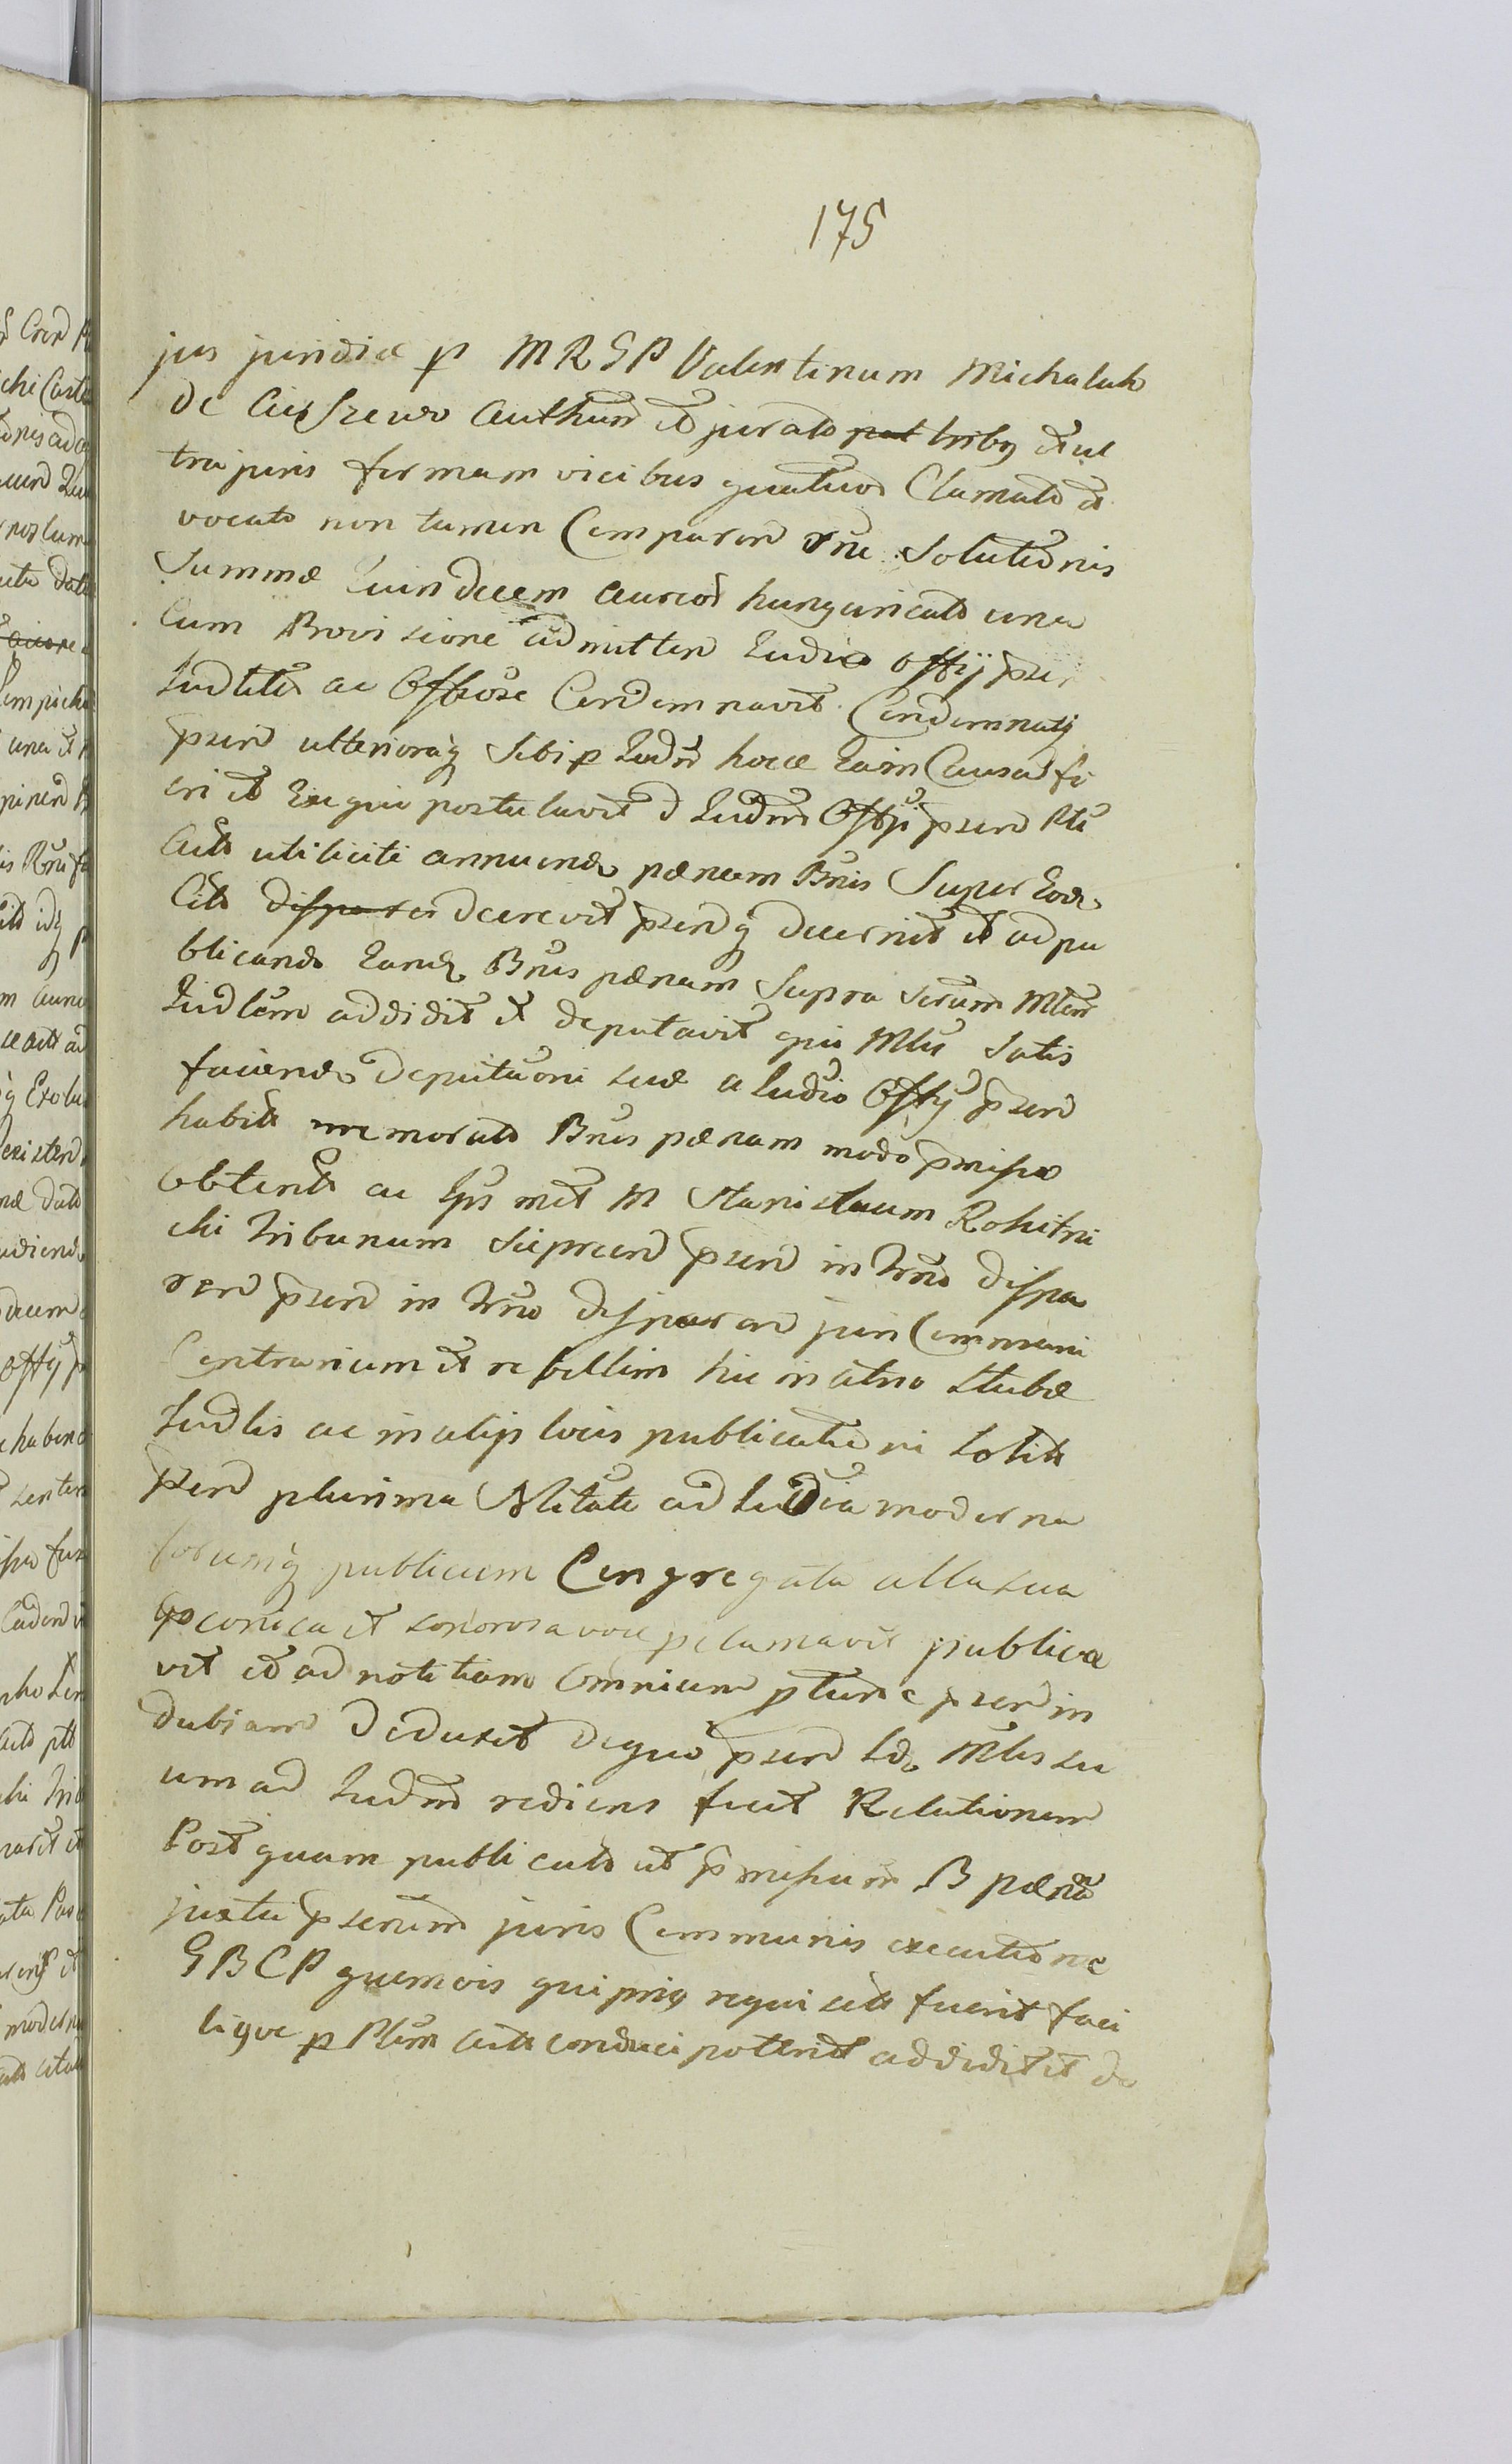 175
jus juridice p MRGP Valentinum Michaluk
de Ciszewo Authum et jurato put tribq et ul
tra juris formam vicibus quatuor Clamato et
vocato non tamen Comparen rne Solutionis
Summæ Quindecem aureor hungaricalo una
Cum Provisione admitten Iudio Offij psen
Iudliter ac Offiose Condemnavit Condemnatq
psen ulteriorag sibi p Iudm hocce Ea in Causa fi
eri et Exequi postulavit d Iudm Offij psen Ptu
Acto utiliciti annuendo pænam Bnis Super Eod
Cito disparen decrevit psendq decernit et ad pu
blicando Eand Bnis pænam Supra scrum Mlem
Iudlem addidit et deputavit qui Mlis Satis
faciendo Deputaoni suæ a Iudio Offij psen
habito memorato Bnis pænam modo pmisso
obtento ac Ipsmet M Stanislaum Rohitni
cki Tribunum Supreem psen in Trno dispa
ren psen in Trno disparen juri Communi
Contrarium et rebellim hic in atrio Stubæ
Iudlis ac in alijs locis publicationi solito
psen plurima Nlitate ad Iudia moderna
forumq publicum Congregata alta sua
pconica et sonorosa voce pclamavit publica
vit et ad notitiam Omnium ptunc psen in
dubiam deduxit dequo psen Id Mlis su
um ad Iudm rediens fecit Relationem
Postquam publicato ut pmissum B pæna
juxta pscrum juris Communis executione
GBCP quemvis qui priq requisito fuerit faci
liqve p Plem Acto conduci poterit addidit et de